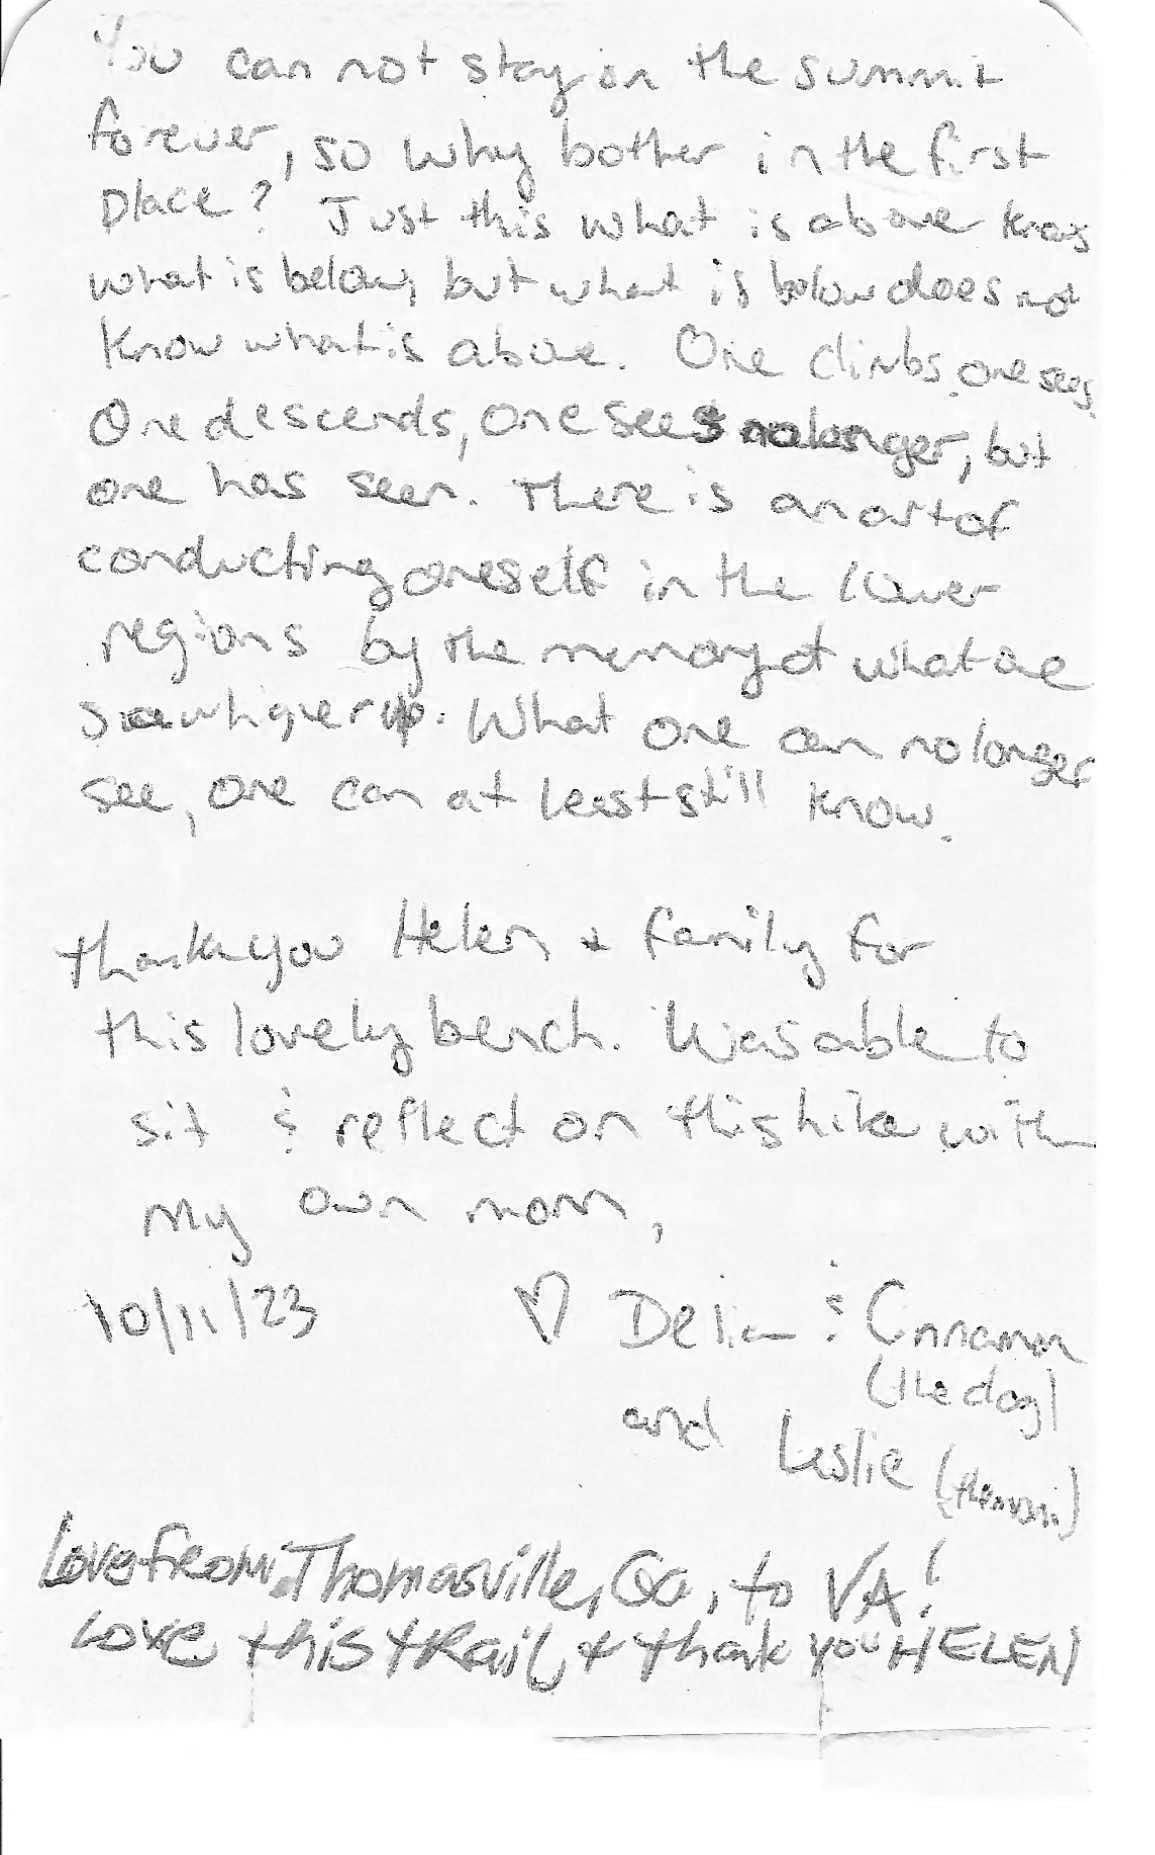 You can not stay on the summit
forever, so why bother in the first
place? Just this what is above knows
what is below, but what is below does not
know what is above. One climbs, one sees.
One descends, one sees no longer, but
one has seen. There is an art of
conducting oneself in the lower
regions by the memory of what one
saw higher up. What one can no longer
see, one can at least still know.
Thank you Helen & family for
this lovely bench. Was able to
sit & reflect on this hike with
my own mom,
10/11/23 ♡ Delia & Cinnamon
(the dog)
and Leslie (the mom)
Love from Thomasville, Ga, to VA!
Love this trail & thank you HELEN